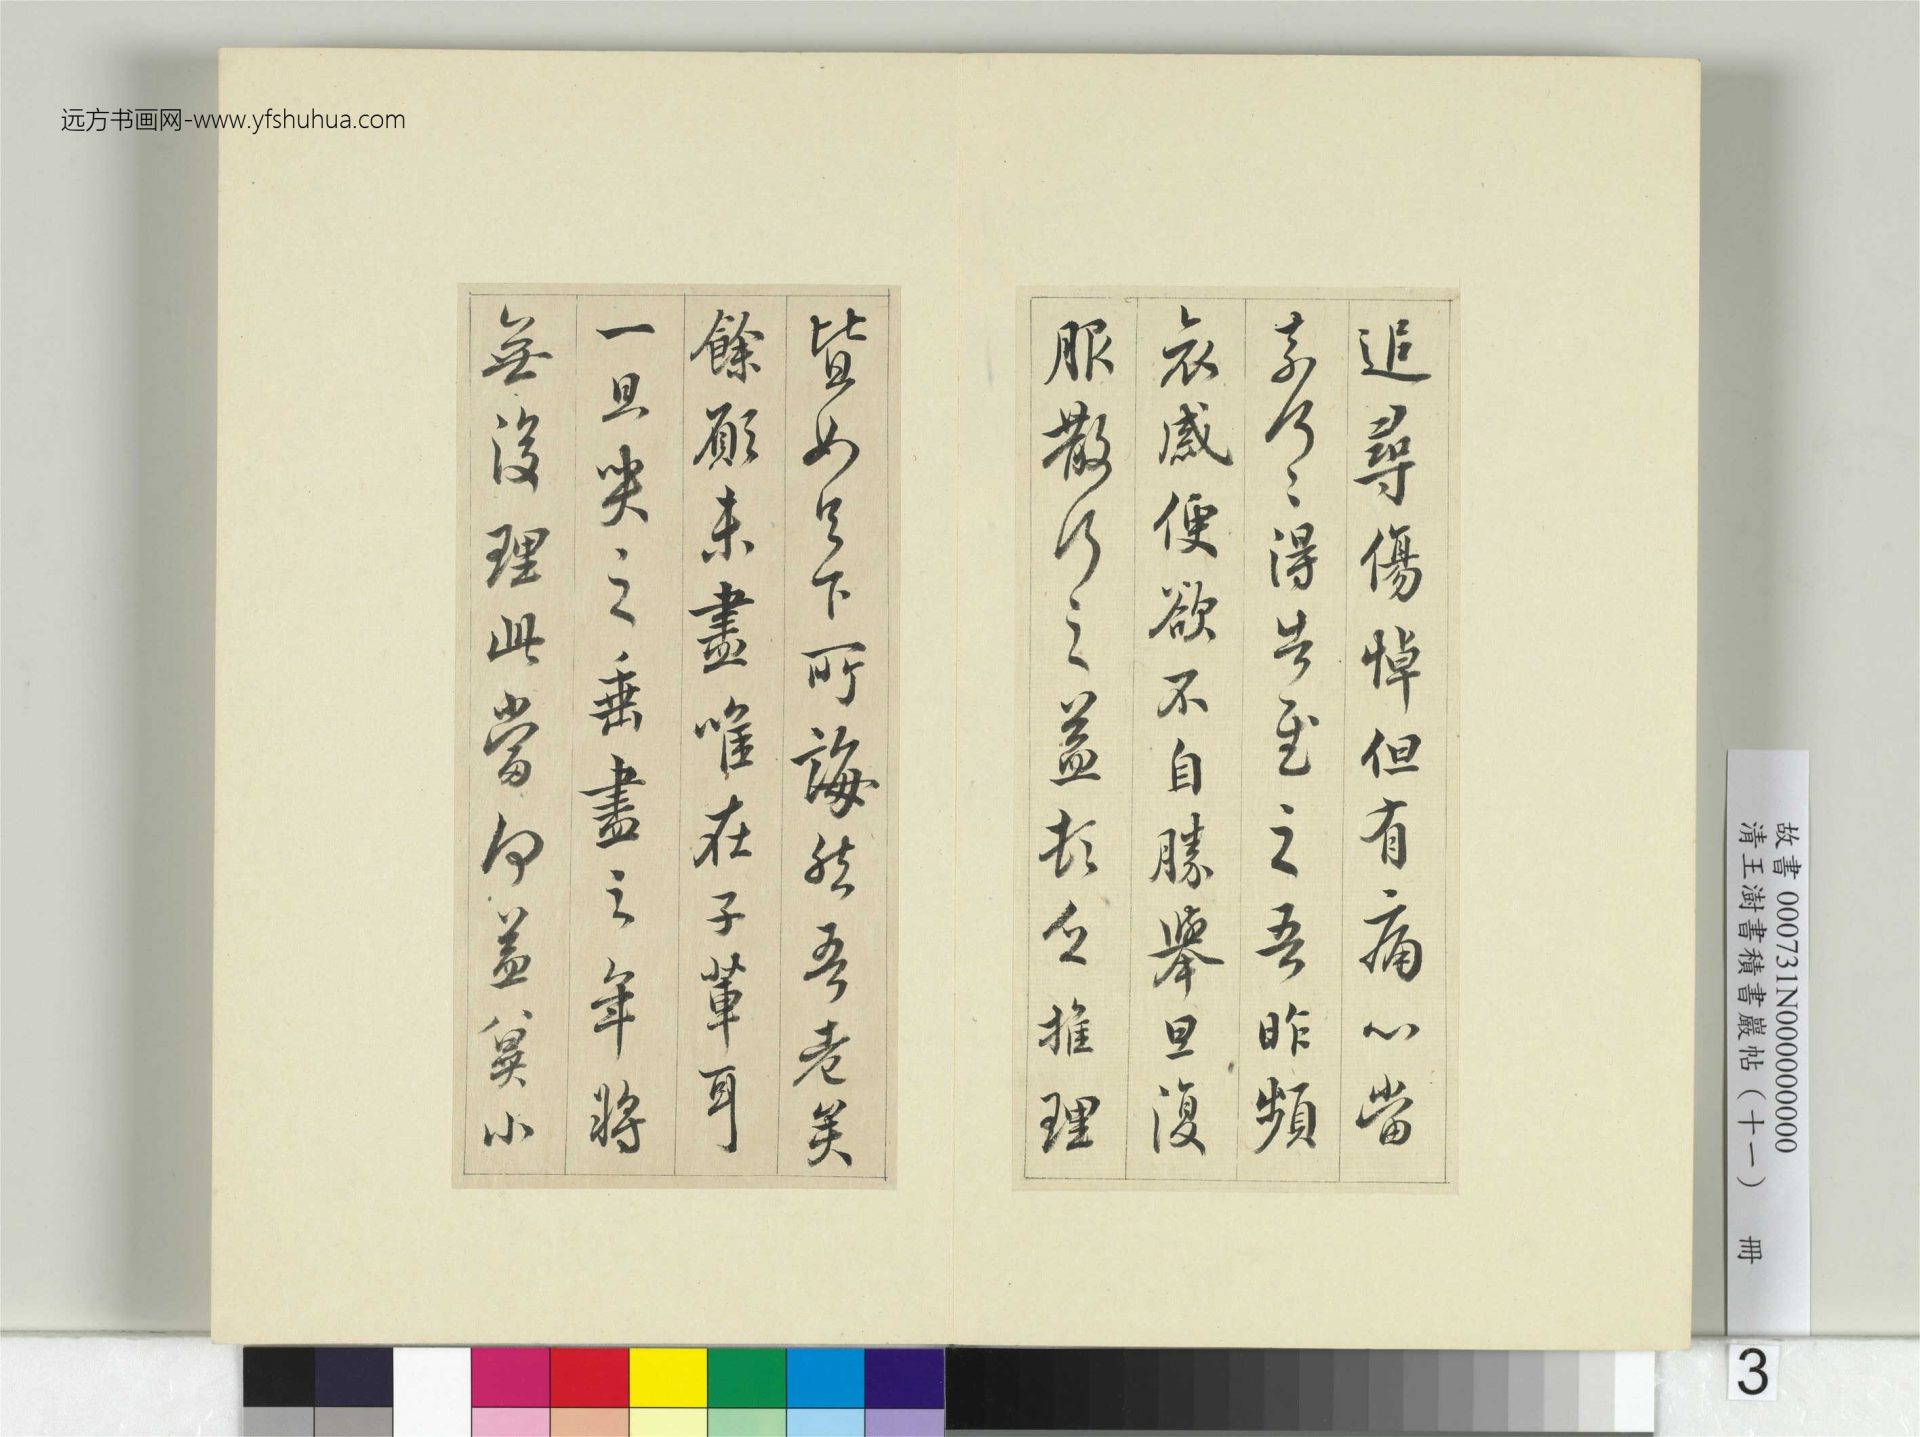 远方书画网-www.yfshuhua.com
追尋傷悼但有痛心當
奈何々得告慰之吾昨頻
哀感便欲不自勝舉旦復
服散行之益頓乏推理
皆如足下所誨然吾老矣
餘願未盡唯在子輩耳
一旦哭之垂盡之年將
無復理此當何益冀小
故書 000731N000000000
清王澍書積書巖帖（十一） 冊
3